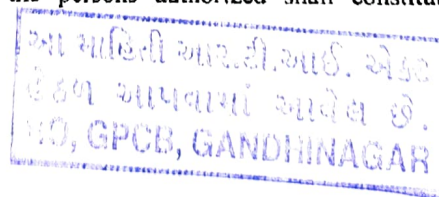 the persons authorized shall constitut
આ માહિતી આર.ટી.આઈ. એક્ટ
હેઠળ આપવામાં આવેલ છે.
HO, GPCB, GANDHINAGAR